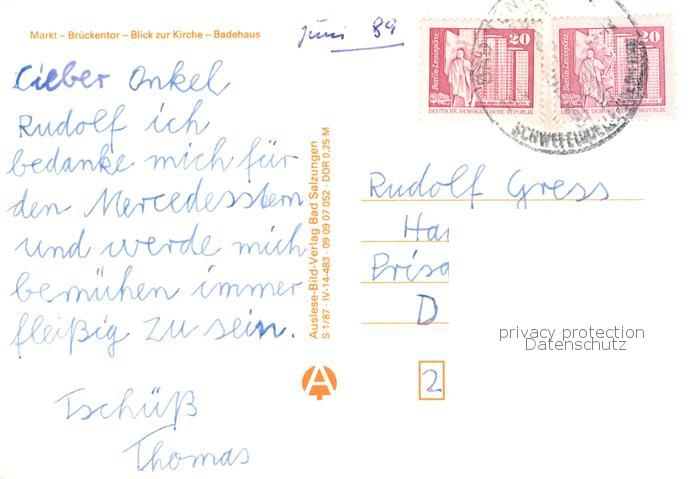 Markt – Brückentor – Blick zur Kirche – Badehaus
Juni 89
Lieber Onkel
Rudolf ich
bedanke mich für
den Mercedesstern
und werde mich
bemühen immer
fleißig zu sein.
Tschüß
Thomas
Auslese-Bild-Verlag Bad Salzungen
S 1/87 · IV-14-483 · 09 09 07 052 · DDR 0,25 M
A
Berlin-Leninplatz
20
DEUTSCHE DEMOKRATISCHE REPUBLIK
Berlin-Leninplatz
20
DEUTSCHE DEMOKRATISCHE REPUBLIK
Rudolf Gress
Hai
Prisa
D
2
privacy protection
Datenschutz